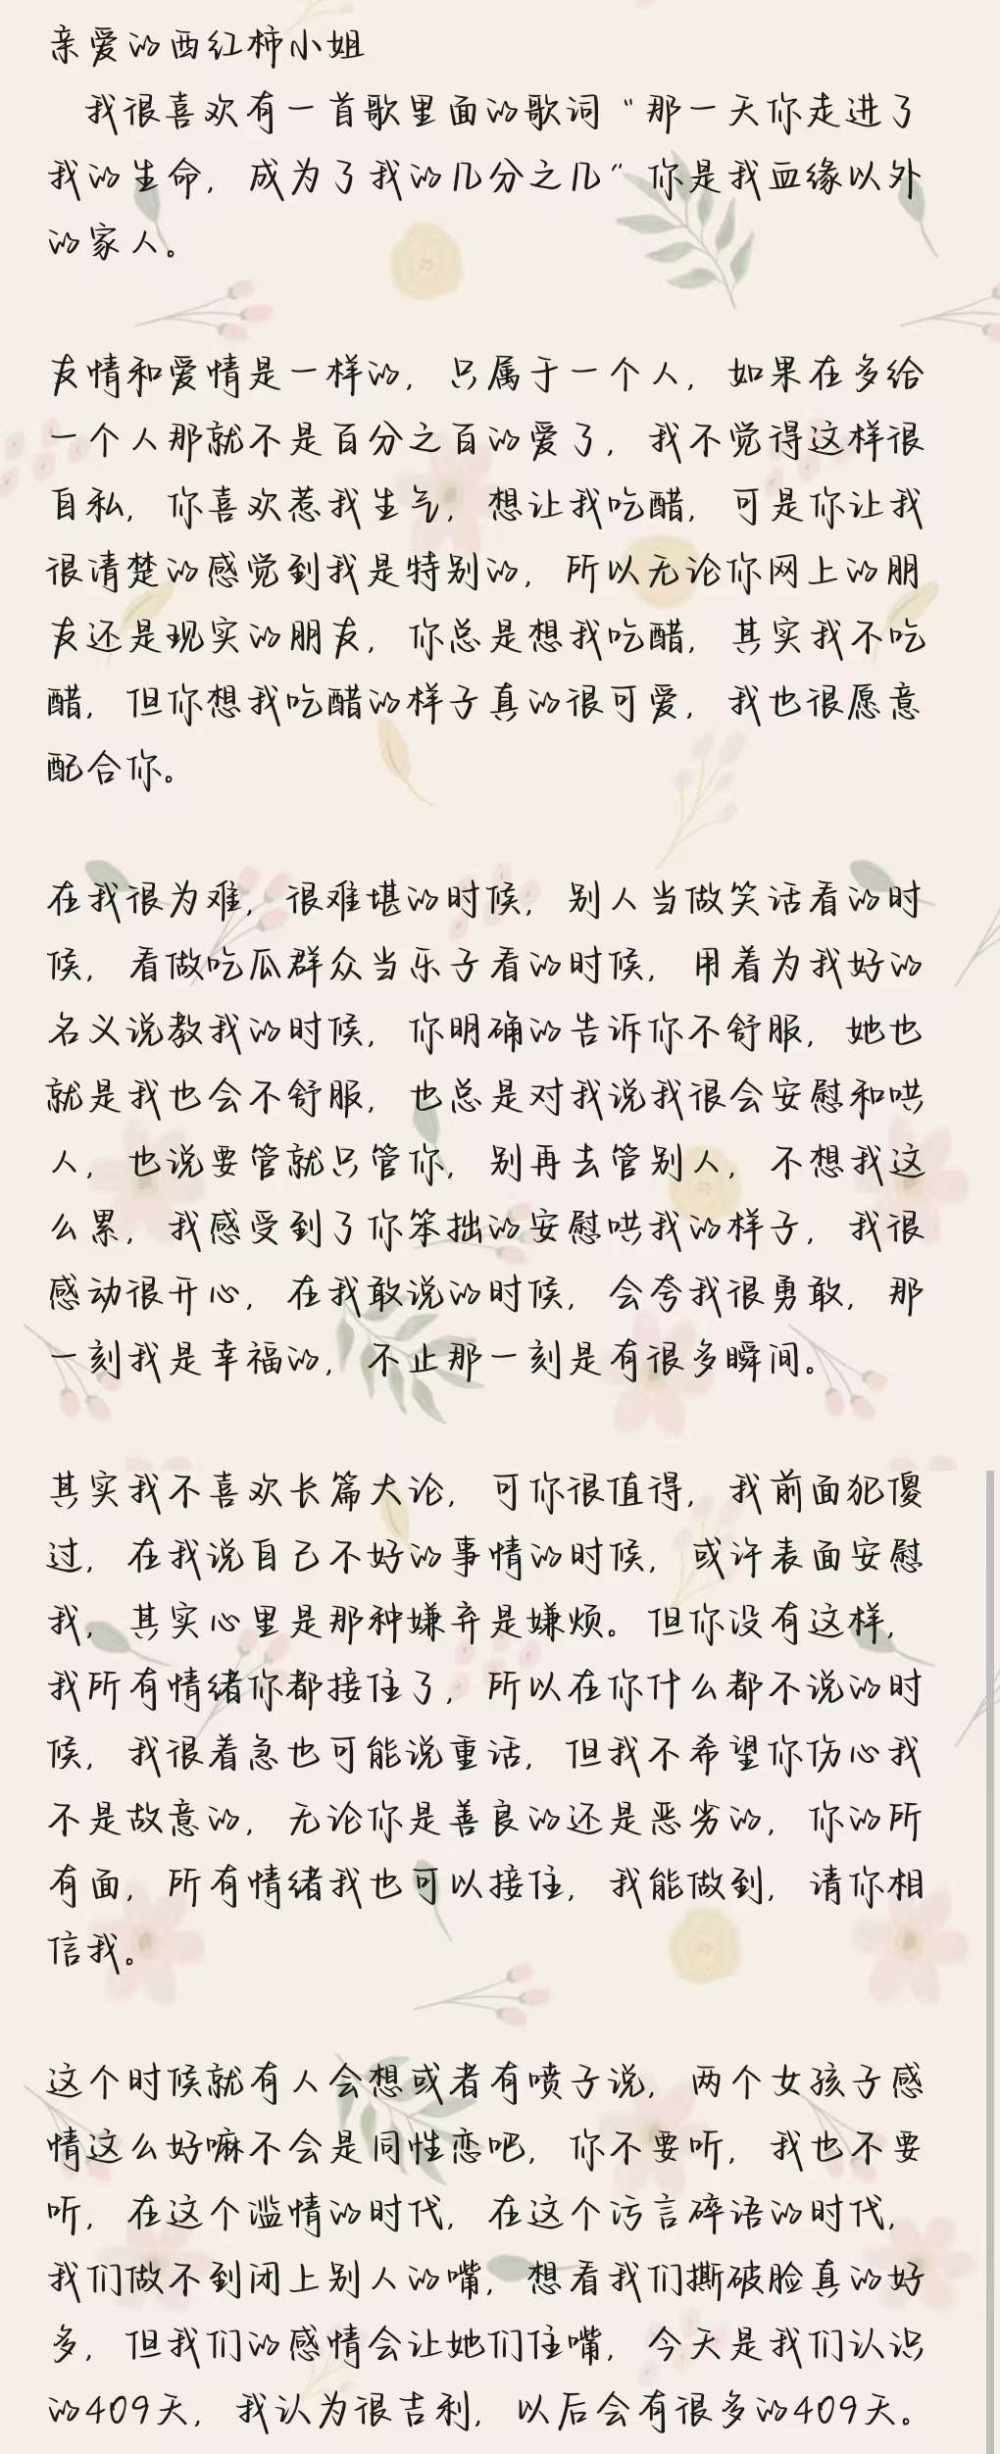 亲爱的西红柿小姐
我很喜欢有一首歌里面的歌词“那一天你走进了
我的生命，成为了我的几分之几”你是我血缘以外
的家人。
友情和爱情是一样的，只属于一个人，如果在多给
一个人那就不是百分之百的爱了，我不觉得这样很
自私，你喜欢惹我生气，想让我吃醋，可是你让我
很清楚的感觉到我是特别的，所以无论你网上的朋
友还是现实的朋友，你总是想我吃醋，其实我不吃
醋，但你想我吃醋的样子真的很可爱，我也很愿意
配合你。
在我很为难，很难堪的时候，别人当做笑话看的时
候，看做吃瓜群众当乐子看的时候，用着为我好的
名义说教我的时候，你明确的告诉你不舒服，她也
就是我也会不舒服，也总是对我说我很会安慰和哄
人，也说要管就只管你，别再去管别人，不想我这
么累，我感受到了你笨拙的安慰哄我的样子，我很
感动很开心，在我敢说的时候，会夸我很勇敢，那
一刻我是幸福的，不止那一刻是有很多瞬间。
其实我不喜欢长篇大论，可你很值得，我前面犯傻
过，在我说自己不好的事情的时候，或许表面安慰
我，其实心里是那种嫌弃是嫌烦。但你没有这样，
我所有情绪你都接住了，所以在你什么都不说的时
候，我很着急也可能说重话，但我不希望你伤心我
不是故意的，无论你是善良的还是恶劣的，你的所
有面，所有情绪我也可以接住，我能做到，请你相
信我。
这个时候就有人会想或者有喷子说，两个女孩子感
情这么好嘛不会是同性恋吧，你不要听，我也不要
听，在这个滥情的时代，在这个污言碎语的时代，
我们做不到闭上别人的嘴，想看我们撕破脸真的好
多，但我们的感情会让她们住嘴，今天是我们认识
的409天，我认为很吉利，以后会有很多的409天。